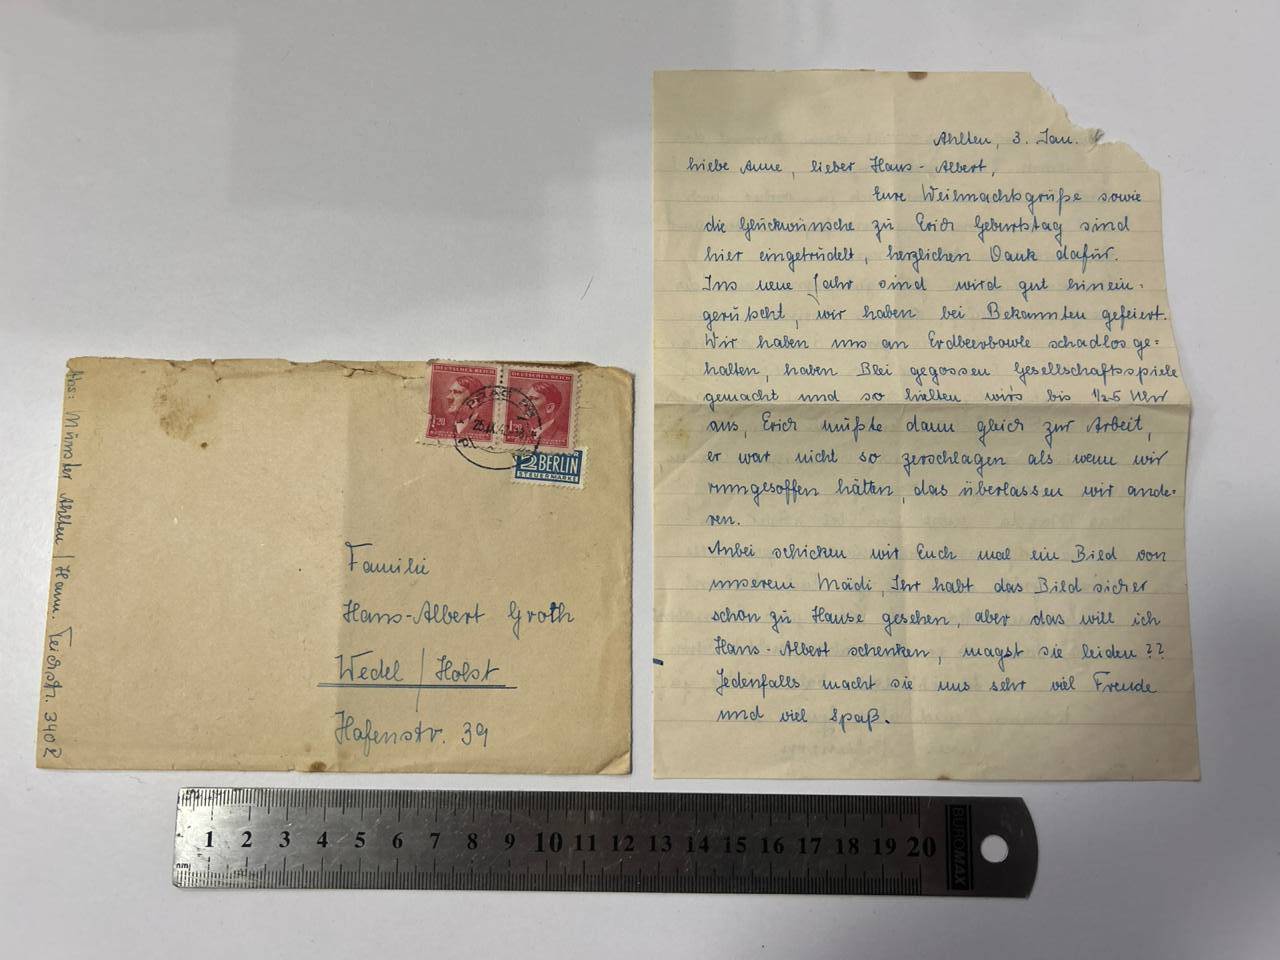 Abs: Münster Ahlten / Hann. Teichstr. 340 R
DEUTSCHES REICH
DEUTSCHES REICH
1.20
1.20
PRAG
2 BERLIN
STEUERMARKE
Familie
Hans-Albert Groth
Wedel / Holst
Hafenstr. 39
Ahlten, 3. Jan.
Liebe Anne, lieber Hans-Albert,
Eure Weihnachtsgrüße sowie
die Glückwünsche zu Erich Geburtstag sind
hier eingetrudelt, herzlichen Dank dafür.
Ins neue Jahr sind wird gut hinein-
gerutscht, wir haben bei Bekannten gefeiert.
Wir haben uns an Erdbeerbowle schadlos ge=
halten, haben Blei gegossen Gesellschaftsspiele
gemacht und so hielten wir's bis 1/2 5 Uhr
aus, Erich mußte dann gleich zur Arbeit,
er war nicht so zerschlagen als wenn wir
rumgesoffen hätten, das überlassen wir ande-
ren.
Anbei schicken wir Euch mal ein Bild von
unserem Mädi, Ihr habt das Bild sicher
schon zu Hause gesehen, aber das will ich
Hans-Albert schenken, magst sie leiden??
Jedenfalls macht sie uns sehr viel Freude
und viel Spaß.
1 2 3 4 5 6 7 8 9 10 11 12 13 14 15 16 17 18 19 20
BUROMAX